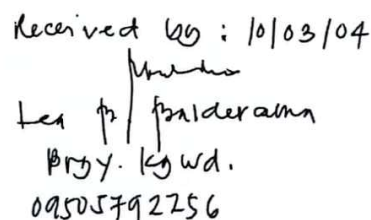 Received by : 10/03/04
Lea B. Balderama
Brgy. Kgwd.
09505792256